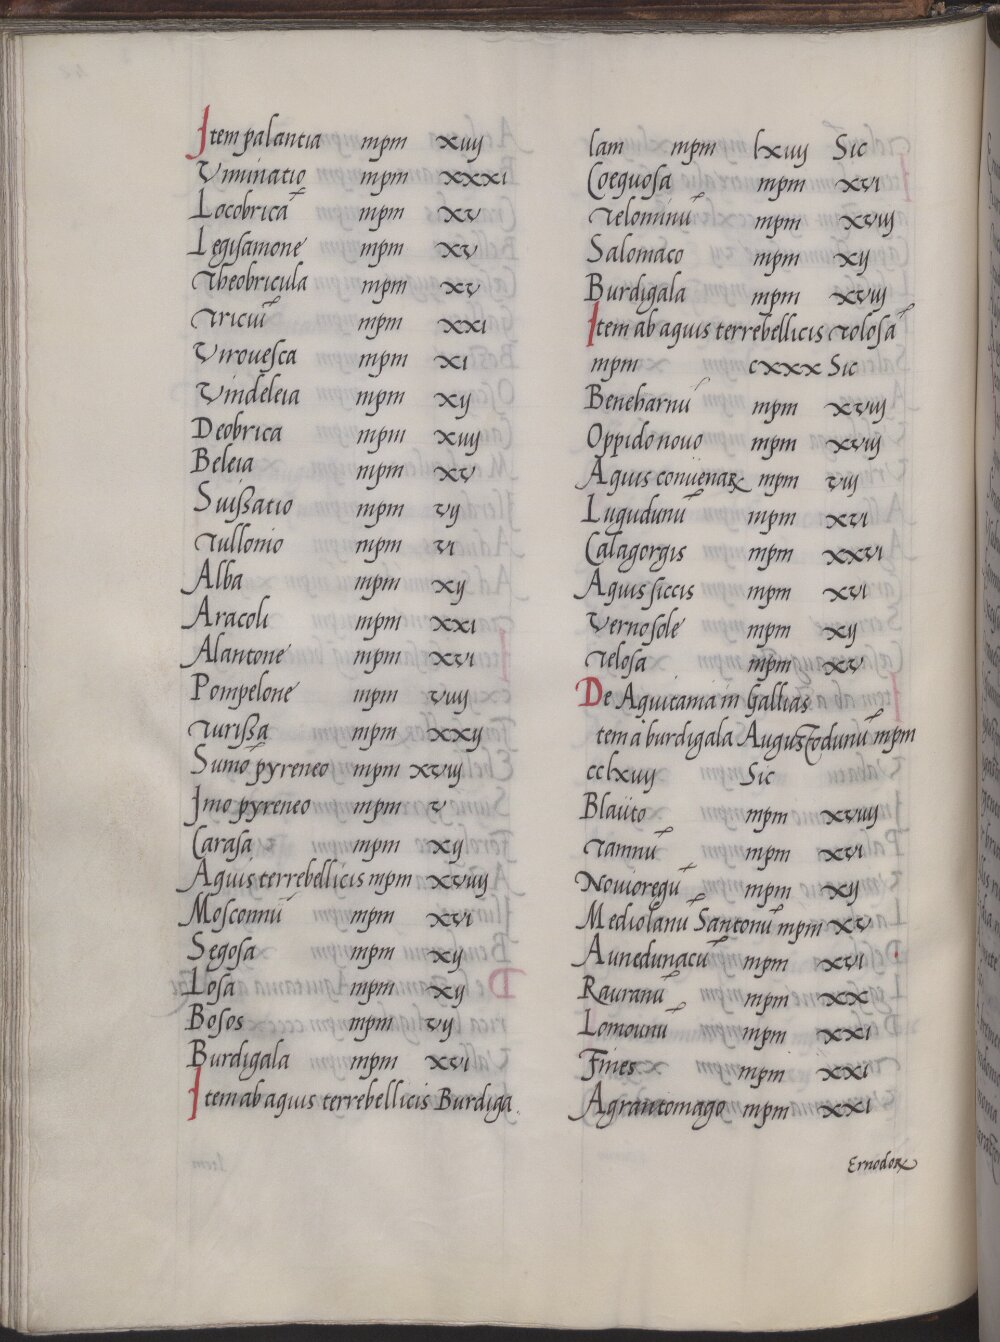 Item palantia mpm xiiij
Viminatio mpm xxxi
Locobrica᷃ mpm xv
Legisamone mpm xv
Theobricula mpm xv
Triciu᷃ mpm xxi
Virouesca mpm xi
Vindeleia mpm xij
Deobrica mpm xiiij
Beleia mpm xv
Suißatio mpm vij
Tullonio mpm vi
Alba mpm xij
Aracoli mpm xxi
Alantone mpm xvi
Pompelone mpm viij
Turißa mpm xxij
Sumo᷃ pyreneo mpm xviij
Imo pyreneo mpm v
Carasa mpm xij
Aquis terrebellicis mpm xviiij
Mosconnu᷃ mpm xvi
Segosa mpm xij
Losa mpm xij
Bosos mpm vij
Burdigala mpm xvi
Item ab aquis terrebellicis Burdiga
lam mpm lxiiij Sic
Coequosa mpm xvi
Telominu᷃ mpm xviij
Salomaco mpm xij
Burdigala mpm xviij
Item ab aquis terrebellicis Tolosa᷃
mpm cxxx Sic
Beneharnu᷃ mpm xviij
Oppido nouo mpm xviij
Aquis conuenaꝝ mpm viij
Lugudunu᷃ mpm xvi
Calagorgis mpm xxvi
Aquis siccis mpm xvi
Vernosole mpm xij
Telosa mpm xv
De Aquitania in Gallias
tem a burdigala Augustodunu᷃ mpm
cclxiiij Sic
Blauto mpm xviiij
Tamnu᷃ mpm xvi
Nouioregu᷃ mpm xij
Mediolanu᷃ Santonu᷃ mpm xv
Aunedunacu᷃ mpm xvi
Rauranu᷃ mpm xx
Lomounu᷃ mpm xxi
Fines mpm xxi
Agrantomago mpm xxi
Ernodoꝝ